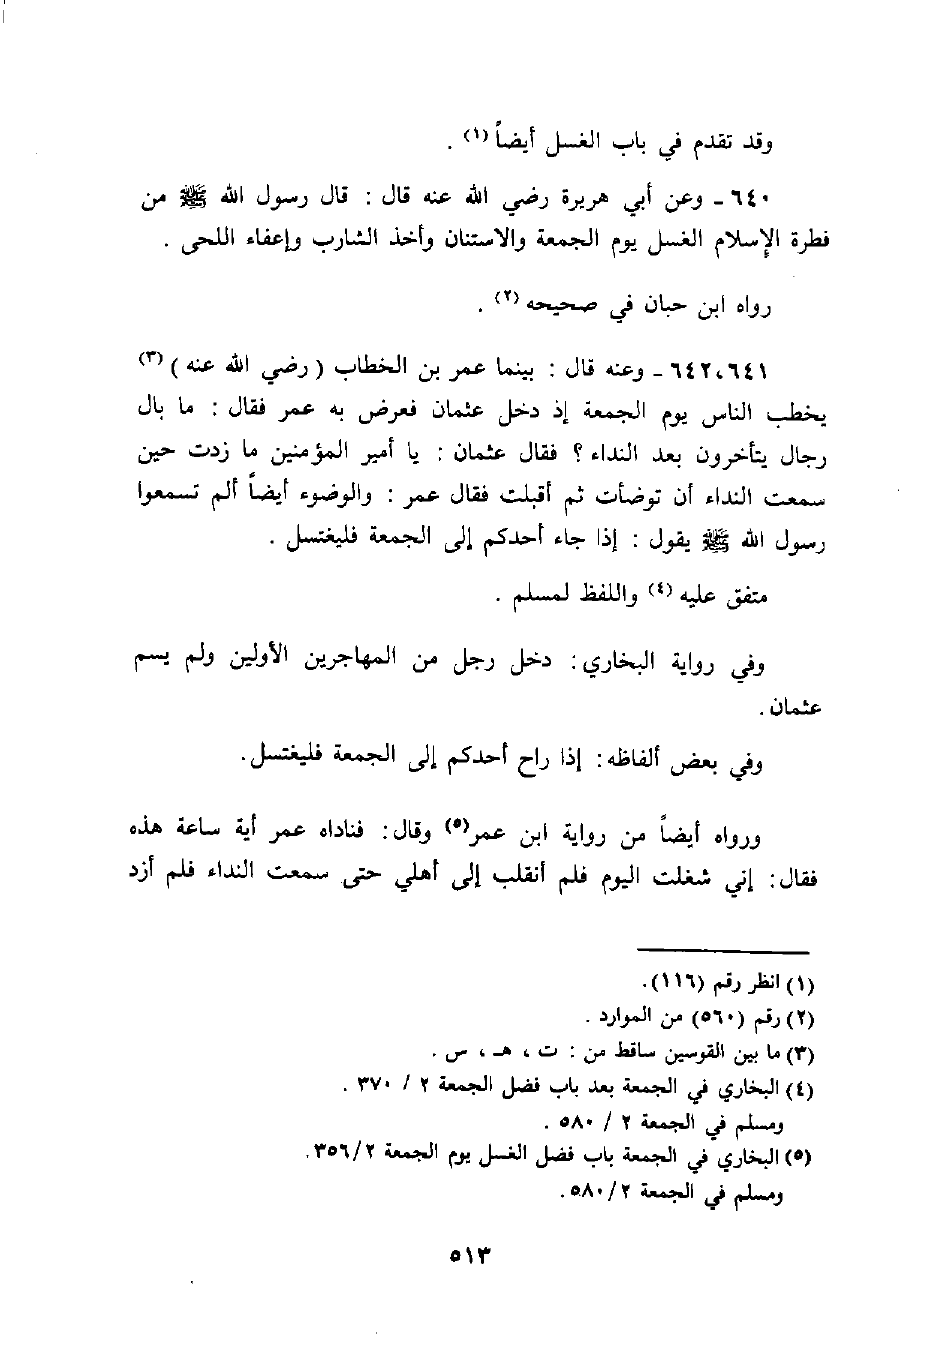 وقد تقدم في باب الغسل أيضاً (١) .
٦٤٠ ـ وعن أبي هريرة رضي الله عنه قال : قال رسول الله ﷺ من
فطرة الإسلام الغسل يوم الجمعة والاستنان وأخذ الشارب وإعفاء اللحى .
رواه ابن حبان في صحيحه (٢) .
٦٤٢،٦٤١ ـ وعنه قال : بينما عمر بن الخطاب ( رضي الله عنه ) (٣)
يخطب الناس يوم الجمعة إذ دخل عثمان فعرض به عمر فقال : ما بال
رجال يتأخرون بعد النداء ؟ فقال عثمان : يا أمير المؤمنين ما زدت حين
سمعت النداء أن توضأت ثم أقبلت فقال عمر : والوضوء أيضاً ألم تسمعوا
رسول الله ﷺ يقول : إذا جاء أحدكم إلى الجمعة فليغتسل .
متفق عليه (٤) واللفظ لمسلم .
وفي رواية البخاري: دخل رجل من المهاجرين الأولين ولم يسم
عثمان .
وفي بعض ألفاظه: إذا راح أحدكم إلى الجمعة فليغتسل.
ورواه أيضاً من رواية ابن عمر(٥) وقال: فناداه عمر أية ساعة هذه
فقال: إني شغلت اليوم فلم أنقلب إلى أهلي حتى سمعت النداء فلم أزد
(١) انظر رقم (١١٦).
(٢) رقم (٥٦٠) من الموارد .
(٣) ما بين القوسين ساقط من : ت ، هـ ، س .
(٤) البخاري في الجمعة بعد باب فضل الجمعة ٢ / ٣٧٠ .
ومسلم في الجمعة ٢ / ٥٨٠ .
(٥) البخاري في الجمعة باب فضل الغسل يوم الجمعة ٣٥٦/٢.
ومسلم في الجمعة ٥٨٠/٢.
٥١٣